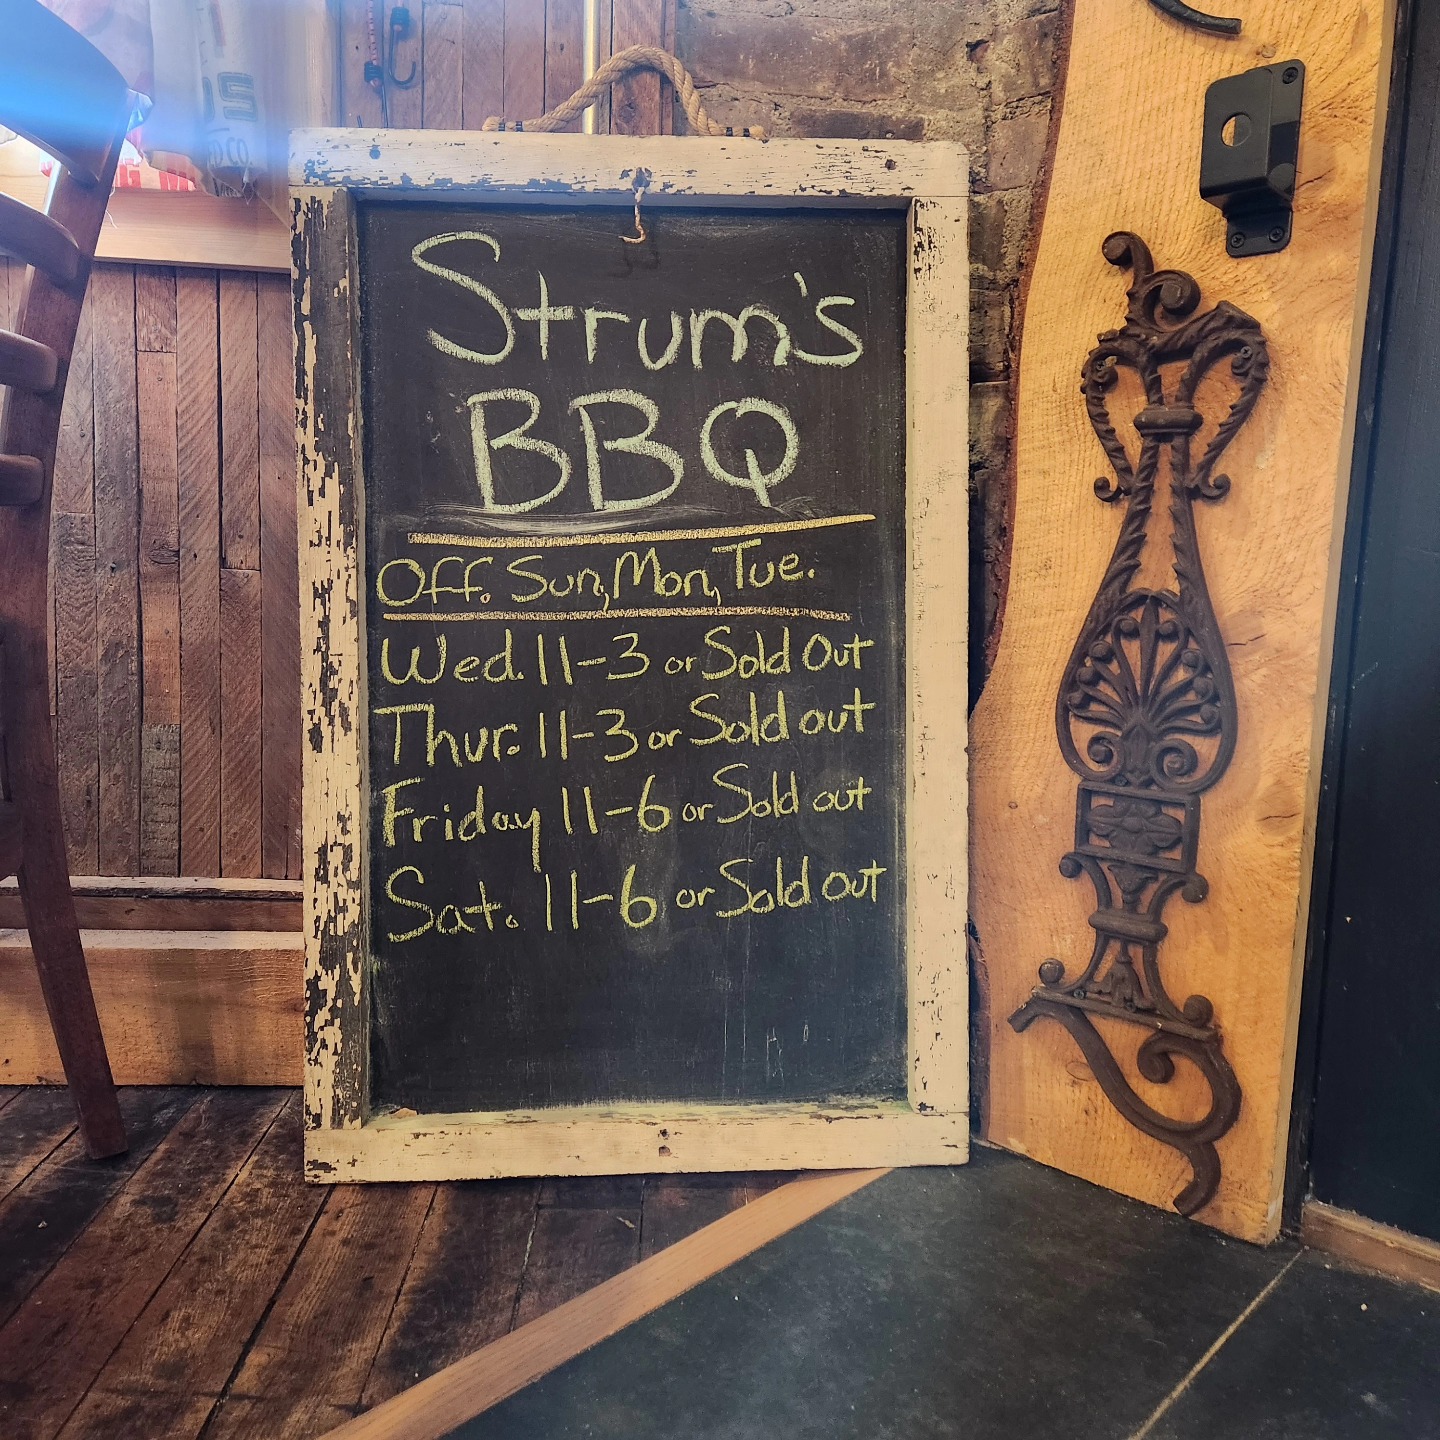 Strum's
BBQ
Off. Sun, Mon, Tue.
Wed. 11-3 or Sold Out
Thur. 11-3 or Sold out
Friday 11-6 or Sold out
Sat. 11-6 or Sold out